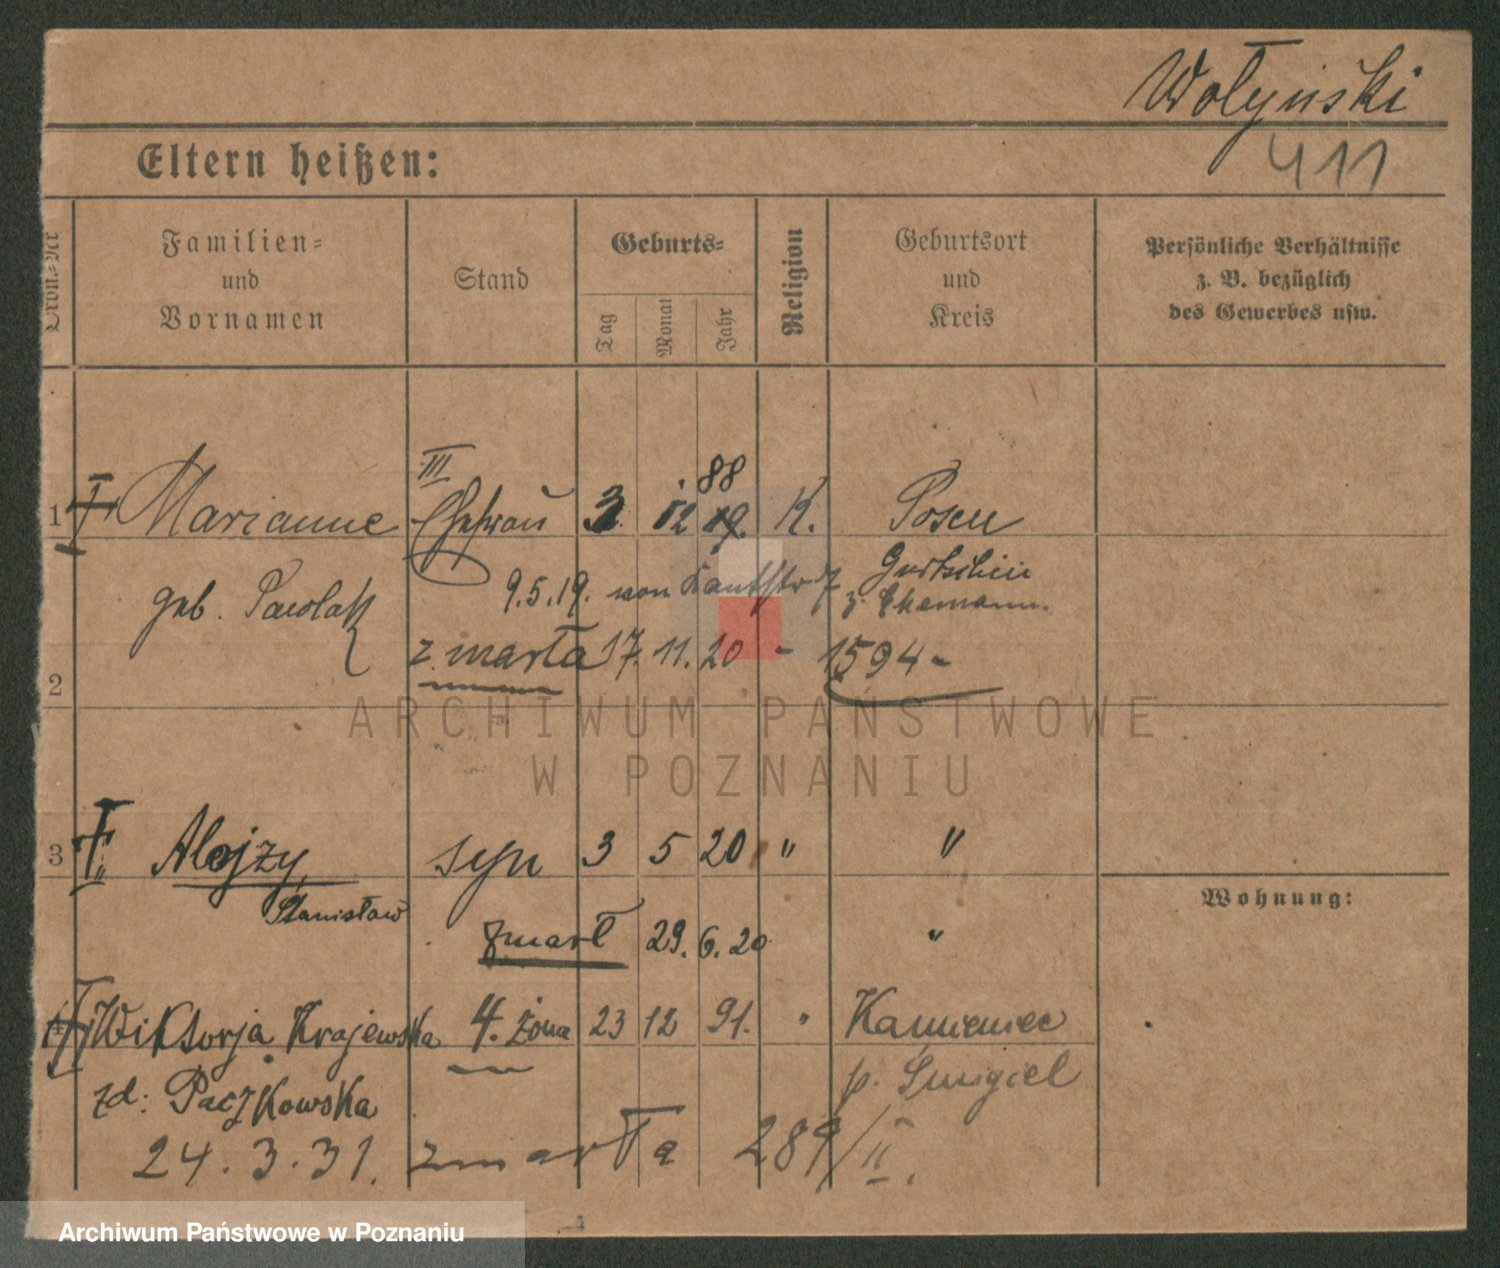 Wołyński
411
Eltern heißen:
Ordn.-Nr
Familien-
und
Vornamen
Stand
Geburts-
Tag
Monat
Jahr
Religion
Geburtsort
und
Kreis
Persönliche Verhältnisse
z. B. bezüglich
des Gewerbes usw.
III
88
1 Marianne Ehefrau 3. 12 19. K. Posen
geb. Pawlak 9.5.19. von
z. Ehemann.
zmarła 17. 11. 20 - 1594-
2
ARCHIWUM PAŃSTWOWE
W POZNANIU
3 Alojzy syn 3 5 20 " "
Stanisław
zmarł 29. 6. 20 "
Wohnung:
4 Wiktorja Krajewska 4. żona 23 12 91. " Kamieniec
zd: Paczkowska p. Śmigiel
24. 3. 31. zmarła 289/II.
Archiwum Państwowe w Poznaniu